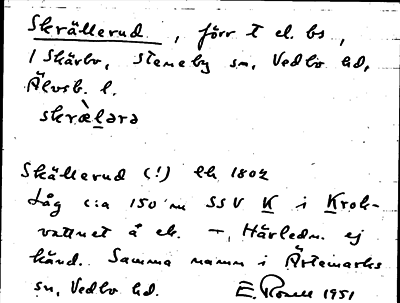 Skrällerud, förr t el. bs,
i Skärbo, Steneby sn, Vedbo hd,
Älvsb. l.
skræ̀lərə
Skällerud (!) lk 1802
Låg c:a 150 m SSV K i Krok-
vattnet å ek. –, Härledn. ej
känd. Samma namn i Ärtemarks
sn, Vedbo hd. E. 1951